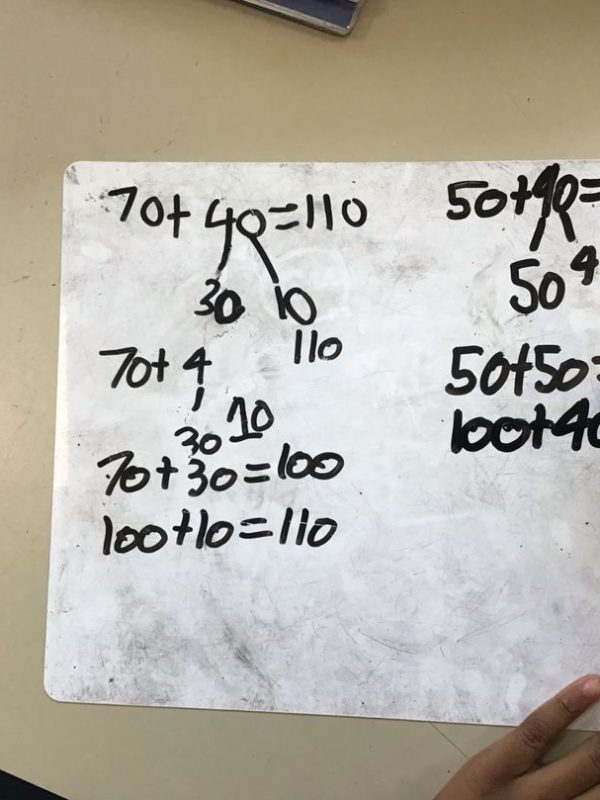 70+ 40=110
30 10
110
70+ 4
30 10
70+30=100
100+10=110
50+90=
50 4
50+50=
100+40